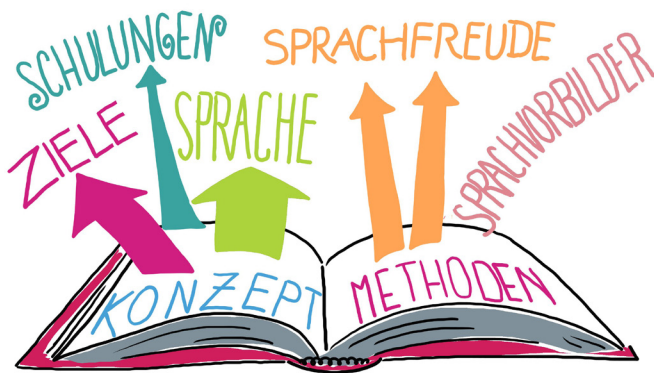 SCHULUNGEN
ZIELE
SPRACHE
SPRACHFREUDE
SPRACHVORBILDER
KONZEPT
METHODEN